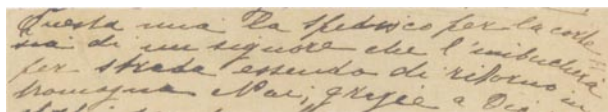 Questa mia la spedisco per la corte-
sia di un signore che l'imbucherà
per strada essendo di ritorno in
Noi, grazie a Dio